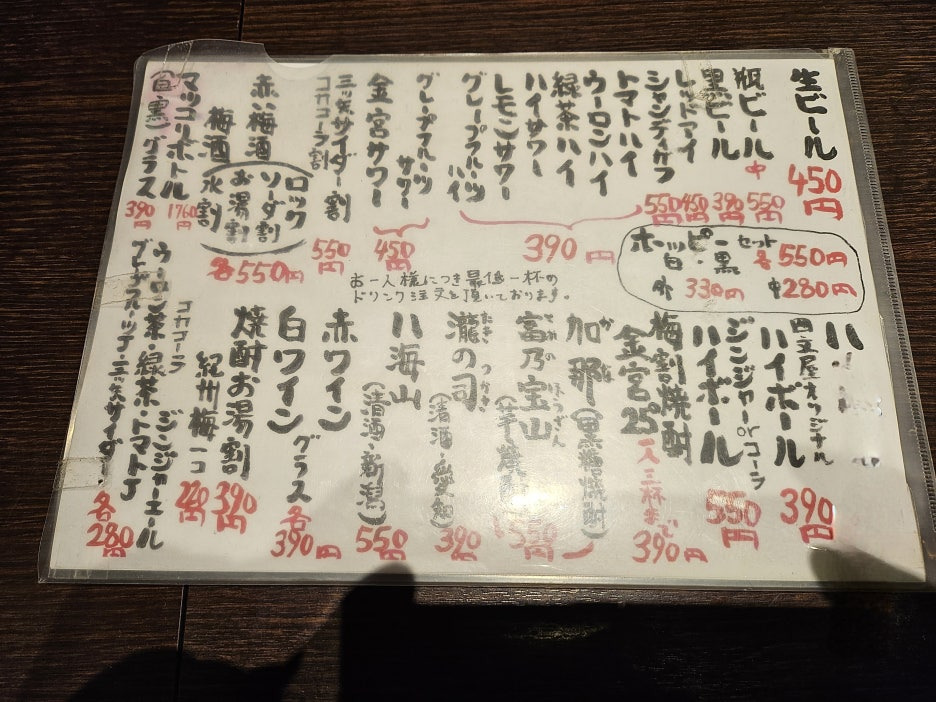 生ビール 450円
瓶ビール 中 550円
黒ビール 390円
レッドアイ 450円
シャンディガフ 550円
トマトハイ
ウーロンハイ
緑茶ハイ
ハイサワー
レモンサワー
グレープフルーツハイ
390円
グレープフルーツサワー
金宮サワー
450円
三ッ矢サイダー割
コカコーラ割
550円
赤い梅酒
梅酒
ロック
ソーダ割
お湯割
水割
各550円
マッコリボトル 1760円
(白黒)グラス 390円
ホッピー セット
白・黒 各550円
外330円 中280円
お一人様につき最低一杯の
ドリンク注文を頂いております。
ハイボール 390円
ジンジャーorコーラ
ハイボール 550円
梅割焼酎
金宮25° 一人三杯まで
390円
加那(黒糖焼酎)
富乃宝山
550円
瀧の司(清酒・愛知) 390円
たき つかさ
八海山(清酒・新潟) 550円
赤ワイン
白ワイン グラス
各390円
焼酎お湯割 390円
紀州梅一コ 220円
コカコーラ ジンジャーエール
ウーロン茶・緑茶・トマトJ
グレープフルーツJ・三ッ矢サイダー
各280円